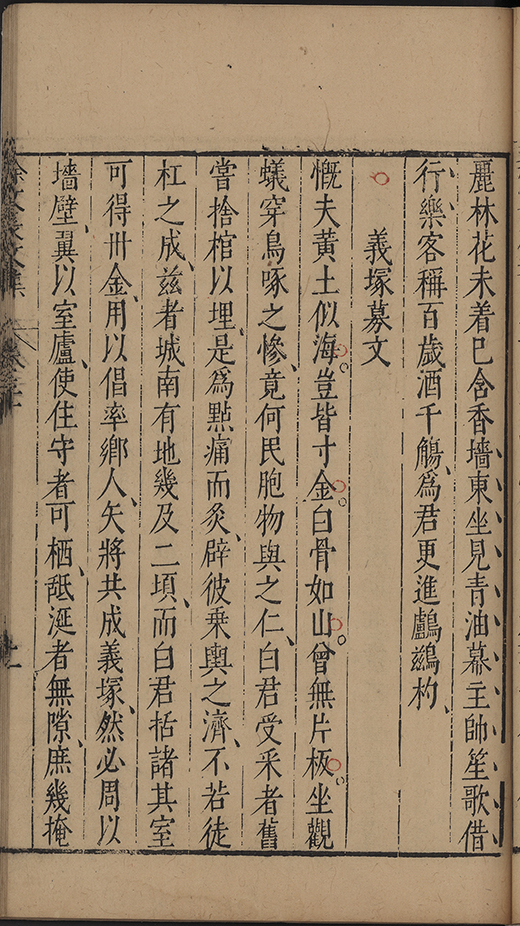 麗林花未着已含香墻東坐見青油幕主帥笙歌借
行樂客稱百歲酒千觴、為君更進鸕鷀杓、
義塚募文
慨夫黄土似海。豈皆寸金。白骨如山。曾無片板。坐觀
蟻穿鳥啄之慘、竟何民胞物與之仁、白君受采者舊
嘗捨棺以埋、是爲㸃痛而灸、辟彼乗輿之濟、不若徒
杠之成、兹者城南有地幾及二頃、而白君括諸其室
可得卅金、用以倡率鄉人、矢將共成義塚、然必周以
墻壁、翼以室廬、使住守者可栖、舐涎者無隙、庶幾掩